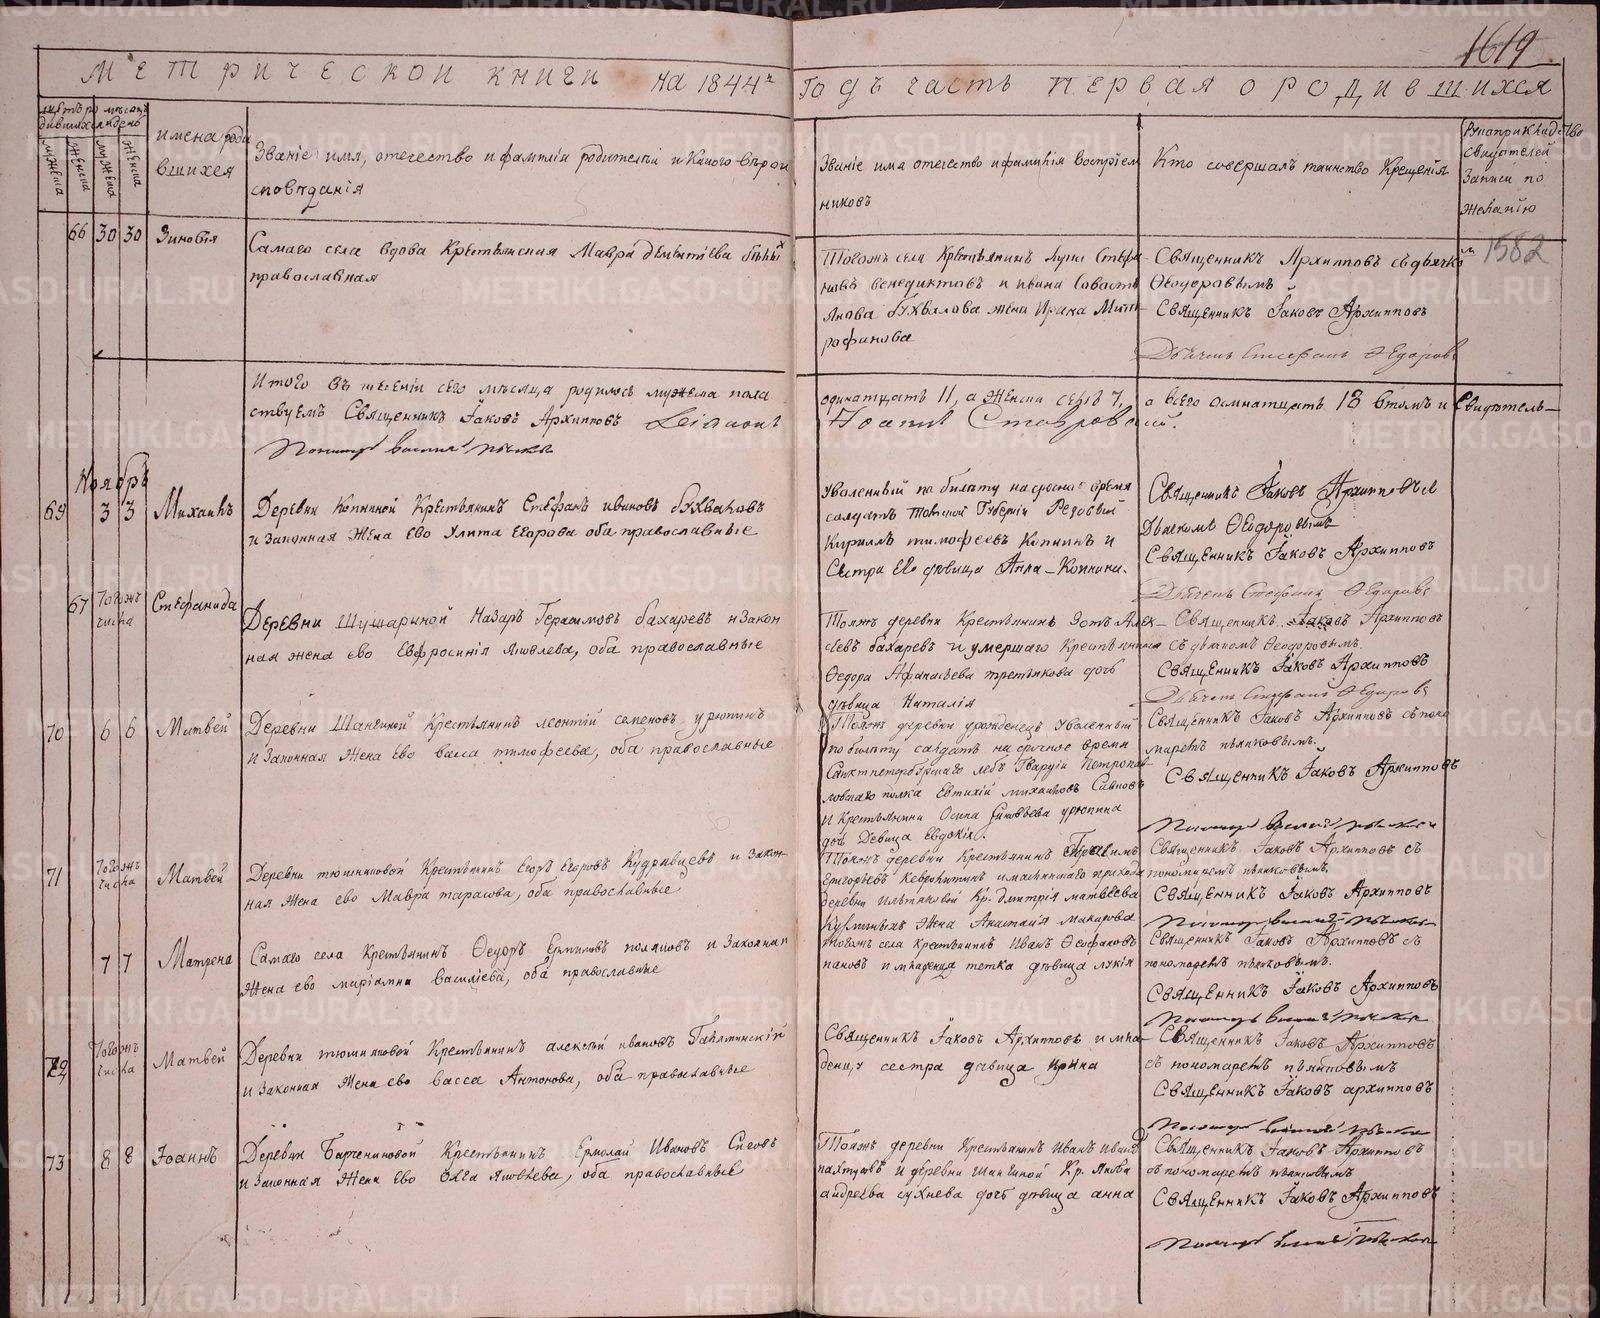 1619
МЕТРИЧЕСКОЙ КНИГИ НА 1844й
Годъ часть первая о родившихся
имена роди
вшихся
Званіе имя, отечество и фамиліи родителей и какого вѣрои
сповѣданія
Званіе имя отечество и фамилія воспріем
никовъ
Кто совершалъ таинство Крещенія
Рукоприкладство
свидѣтелей
Записи по
желанію
66 30 30 Зиновія
Самаго села вдова Крестьянская Мавра Дементіева
православная
Тогожъ села Крестьянинъ Лука Стефа
новъ Венедиктовъ и Ивана Савасть
янова Бухвалова жена Ирина Мит
рофанова
Священникъ Архипповъ съ дьячкомъ
Ѳеодоровымъ
Священникъ Іаковъ Архипповъ
Дьячекъ Стефанъ Ѳедоровъ
1582
Итого въ теченіи сего мѣсяца родилось мужеска пола
одинатцать 11, а женска семь 7, а всего осмнатцать 18 втомъ и свидѣтель
ствуемъ Священникъ Іаковъ Архипповъ
Іоаннъ Ставровскій.
Ноябрь
69 3 3 Михаилъ
Деревни Копниной Крестьянинъ Стефанъ Ивановъ Бухваловъ
и законная жена его Улита Егорова оба православные
Уволенный по билету на срочное время
солдатъ Томской Губерніи Рядовый
Кириллъ Тимофеевъ Копнинъ и
Сестра его дѣвица Анна Копнина.
Священникъ Іаковъ Архипповъ съ
Дьячкомъ Ѳеодоровымъ
Священникъ Іаковъ Архипповъ
Дьячекъ Стефанъ Ѳедоровъ
67 Тогожъ
числа
Стефанида
Деревни Шушариной Назаръ Герасимовъ Бахаревъ и закон
ная жена его Евфросинія Яковлева, оба православные
Тояжъ деревни Крестьянинъ Зотъ Алек
сеевъ Бахаревъ и умершаго Крестьянина
Ѳедора Афанасьева Третьякова дочь
дѣвица Наталія
Священникъ Іаковъ Архипповъ
съ дьячкомъ Ѳеодоровымъ.
Священникъ Іаковъ Архипповъ
Дьячекъ Стефанъ Ѳедоровъ
70 6 6 Матвей
Деревни Шангиной Крестьянинъ Леонтій Семеновъ Урюпинъ
и законная жена его Васса Тимофеева, оба православные
Тояжъ деревни урожденецъ уволенный
по билету солдатъ на срочное время
Санктпетербургскаго Лебъ Гвардіи Петропав
ловскаго полка Евтихій Михайловъ
и Крестьянина Осипа Зиновьева Урюпина
дочь Девица Евдокія.
Священникъ Іаковъ Архипповъ съ поно
маремъ Пьянковымъ.
Священникъ Іаковъ Архипповъ
71 Тогожъ
числа
Матвей
Деревни Тюменяковой Крестьянинъ Егоръ Егоровъ Кудрявцевъ и закон
ная жена его Мавра Тарасова, оба православные
Тояжъ деревни Крестьянинъ
Григорьевъ
деревни Ильтяковой Кр. Дмитрія Матвеева
жена Анастасія Макарова
Священникъ Іаковъ Архипповъ съ
пономаремъ Пьянковымъ,
Священникъ Іаковъ Архипповъ
7 7 Матрена
Самаго села Крестьянинъ Ѳедоръ Ермиловъ Поляковъ и законная
жена его Маріамна Васильева, оба православные
Тогожъ села Крестьянинъ Иванъ Ѳеофановъ
Пановъ и младенца тетка дѣвица Лукія
Священникъ Іаковъ Архипповъ съ
пономаремъ Пьянковымъ.
Священникъ Іаковъ Архипповъ
72 Тогожъ
числа
Матвей
Деревни Тюменяковой Крестьянинъ Алексей Ивановъ
и законная жена его Васса Антонова, оба православные
Священникъ Іаковъ Архипповъ и мла
денца сестра дѣвица Ирина
Священникъ Іаковъ Архипповъ
съ пономаремъ Пьянковымъ
Священникъ Іаковъ Архипповъ
73 8 8 Іоаннъ
Деревни Барчениновой Крестьянинъ Ермолай Ивановъ
и законная жена его Олга Яковлева, оба православные
Тояжъ деревни Крестьянинъ Иванъ
и деревни Шангиной Кр. Якова
Андреева Сухнева дочь дѣвица Анна
Священникъ Іаковъ Архипповъ
съ пономаремъ Пьянковымъ
Священникъ Іаковъ Архипповъ
METRIKI.GASO-URAL.RU